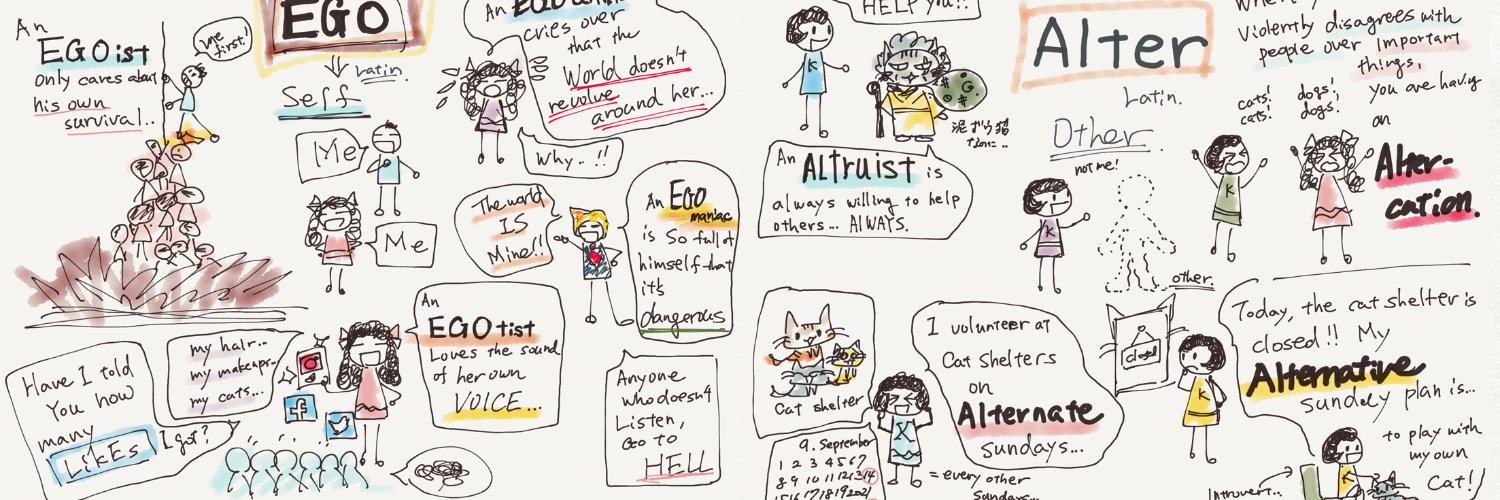 An
EGOist
only cares about
his own
survival..
me
first!
EGO
Latin.
Self
Me
Me
cries over
that the
World doesn't
revolve
around her...
Why..!!
The world
IS
Mine!!
An EGO
maniac
is so full of
himself that
it's
dangerous
Anyone
who doesn't
Listen,
Go to
HELL
An
EGOtist
Loves the sound
of her own
VOICE...
my hair..
my makeups..
my cats...
Have I told
You how
many
LIKEs I got?
HELP you!!
An ALtruist is
always willing to help
others... ALWAYS.
Alter
Latin.
Other.
not me!
other.
Violently disagrees with
people over Important
things,
you are having
an
Alter-
cation.
cats!
cats!
dogs!
dogs!
K
K
K
Cat shelter
I volunteer at
Cat shelters
on
Alternate
sundays...
9. September
1 2 3 4 5 6 7
8 9 10 11 12 13 14
15 16 17 18 19 20 21
= every other
Sundays...
closed
K
Today, the cat shelter is
closed!! My
Alternative
sunday plan is...
to play with
my own
Cat!!
Introvert...
K